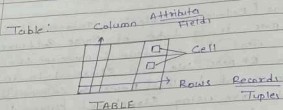 Table: Column Attribute
Fields
Cell
Rows Records
Tuples
TABLE